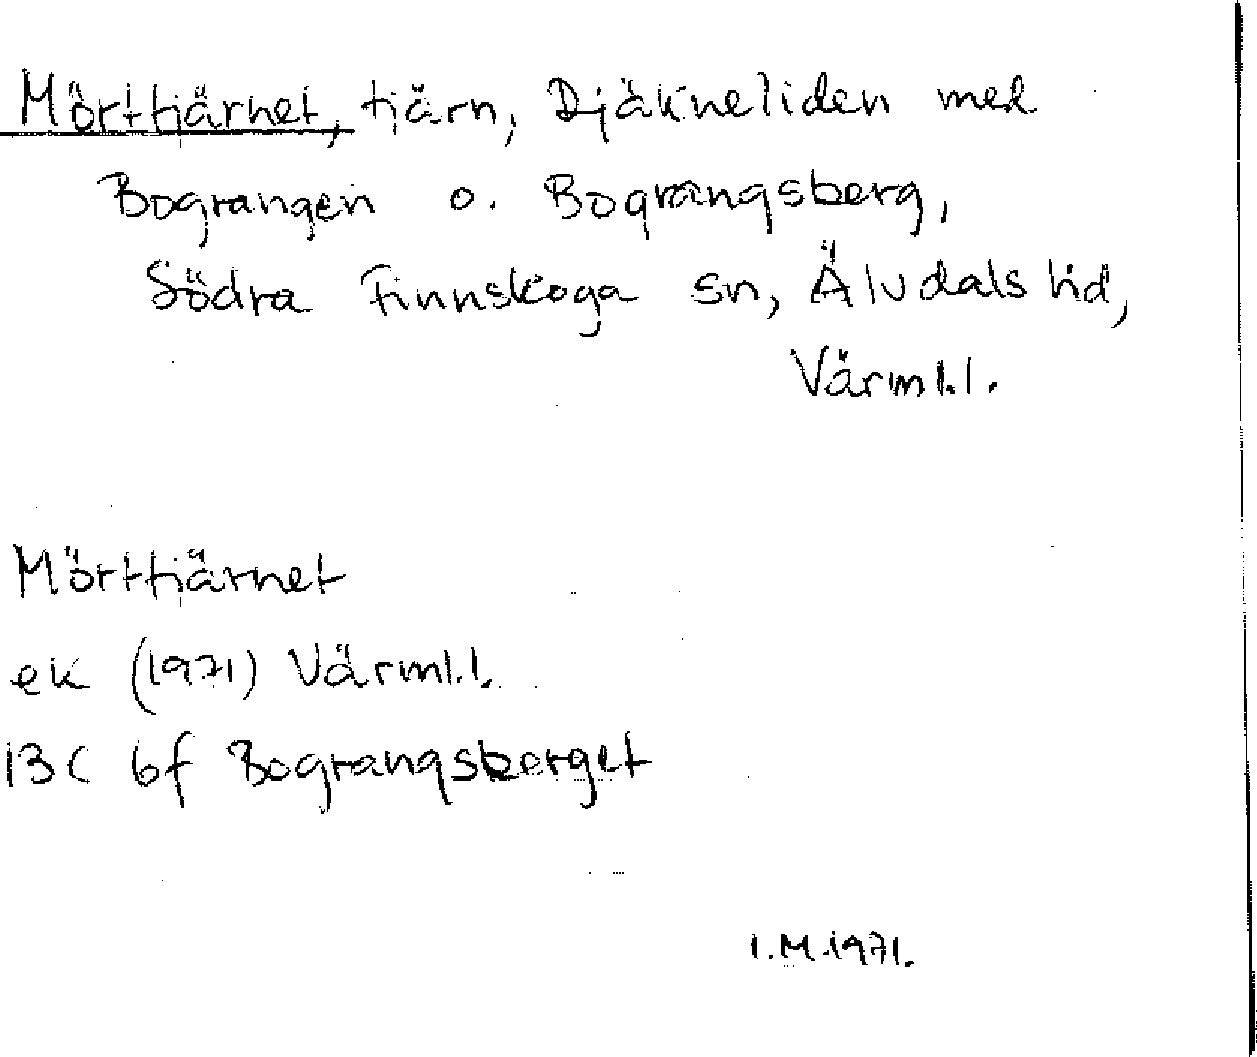 Mörttjärnet, tjärn, Djäkneliden med
Bograngen o. Bograngsberg,
Södra Finnskoga sn, Älvdals hd,
Värml.l.
Mörttjärnet
ek (1971) Värml.l.
13C 6f Bograngsberget
I.M.1971.